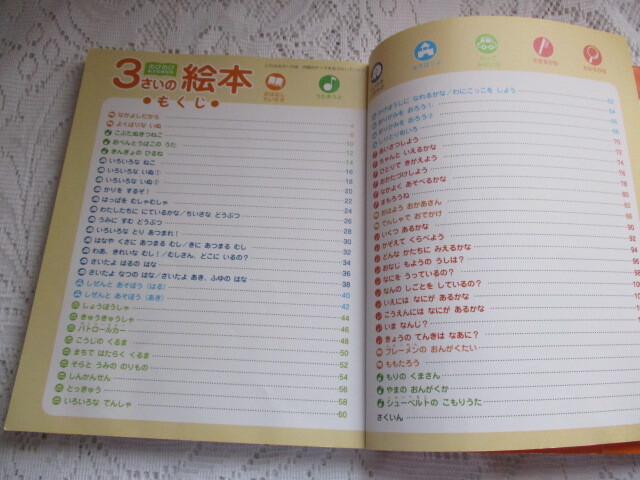 3さいの 絵本
もくじ
なかよしだから
よくばりな いぬ
こぶたぬきつねこ
おべんとうばこの うた
きんぎょの ひるね
いろいろな ねこ
いろいろな いぬ①
いろいろな いぬ②
かりを するぞ!
はっぱを むしゃむしゃ
わたしたちに にているかな/ちいさな どうぶつ
うみに すむ どうぶつ
いろいろな とり あつまれ!
はなや くさに あつまる むし/きに あつまる むし
わあ、きれいな むし!/むしさん、どこに いるの?
さいたよ はるの はな
さいたよ なつの はな/さいたよ あき、ふゆの はな 38
しぜんと あそぼう(はる) 40
しぜんと あそぼう(あき) 42
しょうぼうしゃ 44
きゅうきゅうしゃ 46
パトロールカー 48
こうじの くるま 50
まちで はたらく くるま 52
そらと うみの のりもの 54
しんかんせん 56
とっきゅう 58
いろいろな でんしゃ 60
おりがみを おろう①
おりがみを おろう②
あいさつしよう
ちゃんと いえるかな
ひとりで きがえよう
おかたづけしよう
なかよく あそべるかな
まもろうね
おはよう おかあさん
でんしゃで おでかけ
いくつ あるかな
かぞえて くらべよう
どんな かたちに みえるかな
おなじ もようの うしは?
なにを うっているの?
なんの しごとを しているの?
いえには なにが あるかな
こうえんには なにが あるかな
いま なんじ?
きょうの てんきは なあに?
ブレーメンの おんがくたい
ももたろう
もりの くまさん
やまの おんがくか
シューベルトの こもりうた
さくいん